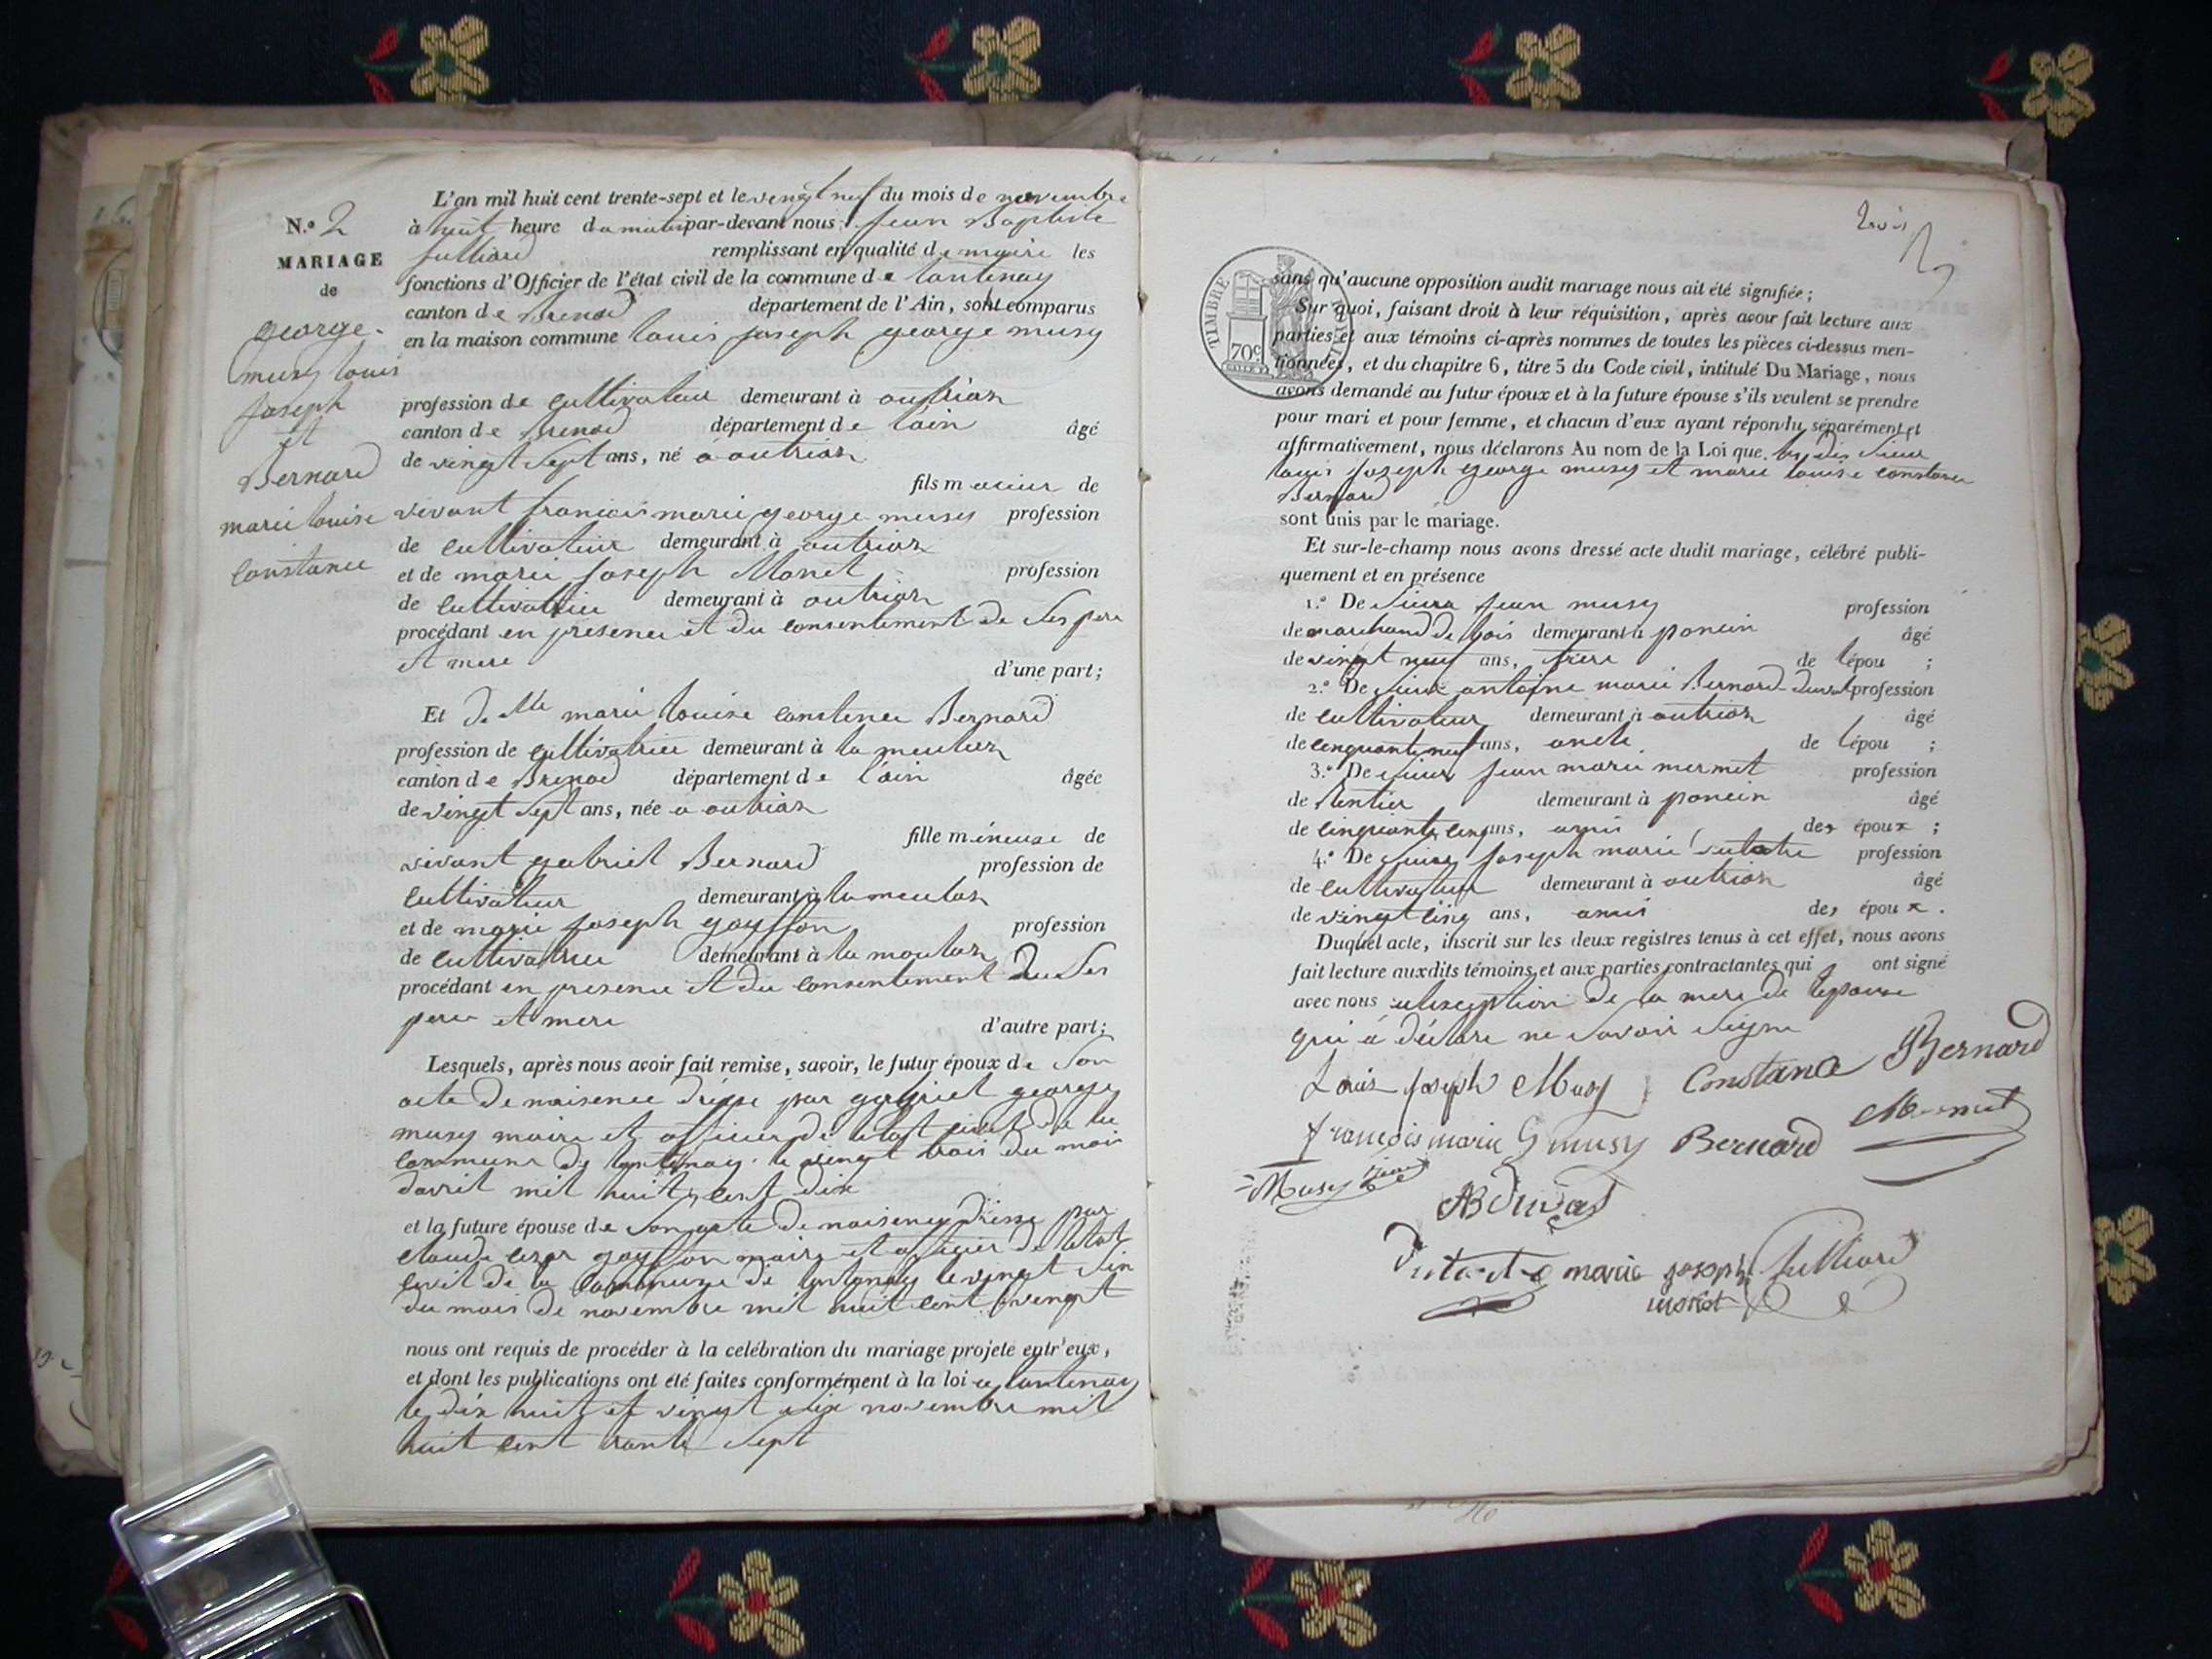 N.º 2
MARIAGE
de
george-
musy louis
joseph
et
Bernard
marie louise
constance
L'an mil huit cent trente-sept et le vingt neuf du mois de novembre
à huit heure du matin par-devant nous, jean Baptiste
julliard remplissant en qualité de maire les
fonctions d'Officier de l'état civil de la commune de lantenay
canton de Brenod département de l'Ain, sont comparus
en la maison commune louis joseph george musy
profession de cultivateur demeurant à outriaz
canton de Brenod département de lain âgé
de vingt sept ans, né à outriaz
fils majeur de
vivant francois marie george musy profession
de cultivateur demeurant à outriaz
et de marie joseph Monet profession
de cultivatrice demeurant à outriaz
procédant en presence et du consentement de ses pere
et mere d'une part;
Et de Mlle marie louise constence Bernard
profession de cultivatrice demeurant à la
canton de Brenod département de l'ain âgée
de vingt sept ans, née a outriaz
fille mineuse de
vivant gabriel Bernard profession de
cultivateur demeurant à la
et de marie joseph goyffon profession
de cultivatrice demeurant à la
procédant en presence et du consentement de ses
pere et mere d'autre part;
Lesquels, après nous avoir fait remise, savoir, le futur époux de son
acte de naisence drésse par gabriel george
musy maire et officier de letat civil de la
commune de lantenay le vingt trois du mois
davril mil huit cent dix
et la future épouse de son acte de naisence drésse par
claude cezar goyffon maire et officier de létat
civil de la commune de lantenay le vingt six
du mois de novembre mil huit cent vingt
nous ont requis de procéder à la celébration du mariage projeté entr'eux,
et dont les publications ont été faites conformément à la loi a lantenay
le dix huit et vingt six novembre mil
huit cent trante sept
trois
sans qu'aucune opposition audit mariage nous ait été signifiée;
TIMBRE ROYAL
70c
Sur quoi, faisant droit à leur réquisition, après avoir fait lecture aux
parties et aux témoins ci-après nommés de toutes les pièces ci-dessus men-
tionnées, et du chapitre 6, titre 5 du Code civil, intitulé Du Mariage, nous
avons demandé au futur époux et à la future épouse s'ils veulent se prendre
pour mari et pour femme, et chacun d'eux ayant répondu séparément et
affirmativement, nous déclarons Au nom de la Loi que les dis sieur
louis joseph george musy et marie louise constance
Bernard
sont unis par le mariage.
Et sur-le-champ nous avons dressé acte dudit mariage, célébré publi-
quement et en présence
1.º De sieur jean musy profession
de marchand de bois demeurant à poncin âgé
de vingt neuf ans, frere de lépou ;
2.º De sieur antoine marie Bernard duval profession
de cultivateur demeurant à outriaz âgé
de cinquante neuf ans, oncle de lépou ;
3.º De sieur jean marie mermet profession
de rentier demeurant à poncin âgé
de cinquante cinq ans, ami des époux ;
4.º De sieur joseph marie profession
de cultivateur demeurant à outriaz âgé
de vingt cinq ans, ami des époux .
Duquel acte, inscrit sur les deux registres tenus à cet effet, nous avons
fait lecture auxdits témoins et aux parties contractantes qui ont signé
avec nous de la mere de lepouse
qui à déclare ne savoir signe
Louis joseph Musy Constance Bernard
francois marie G musy Bernard Mermet
Musy jean
AB duval
marie joseph julliard
monet